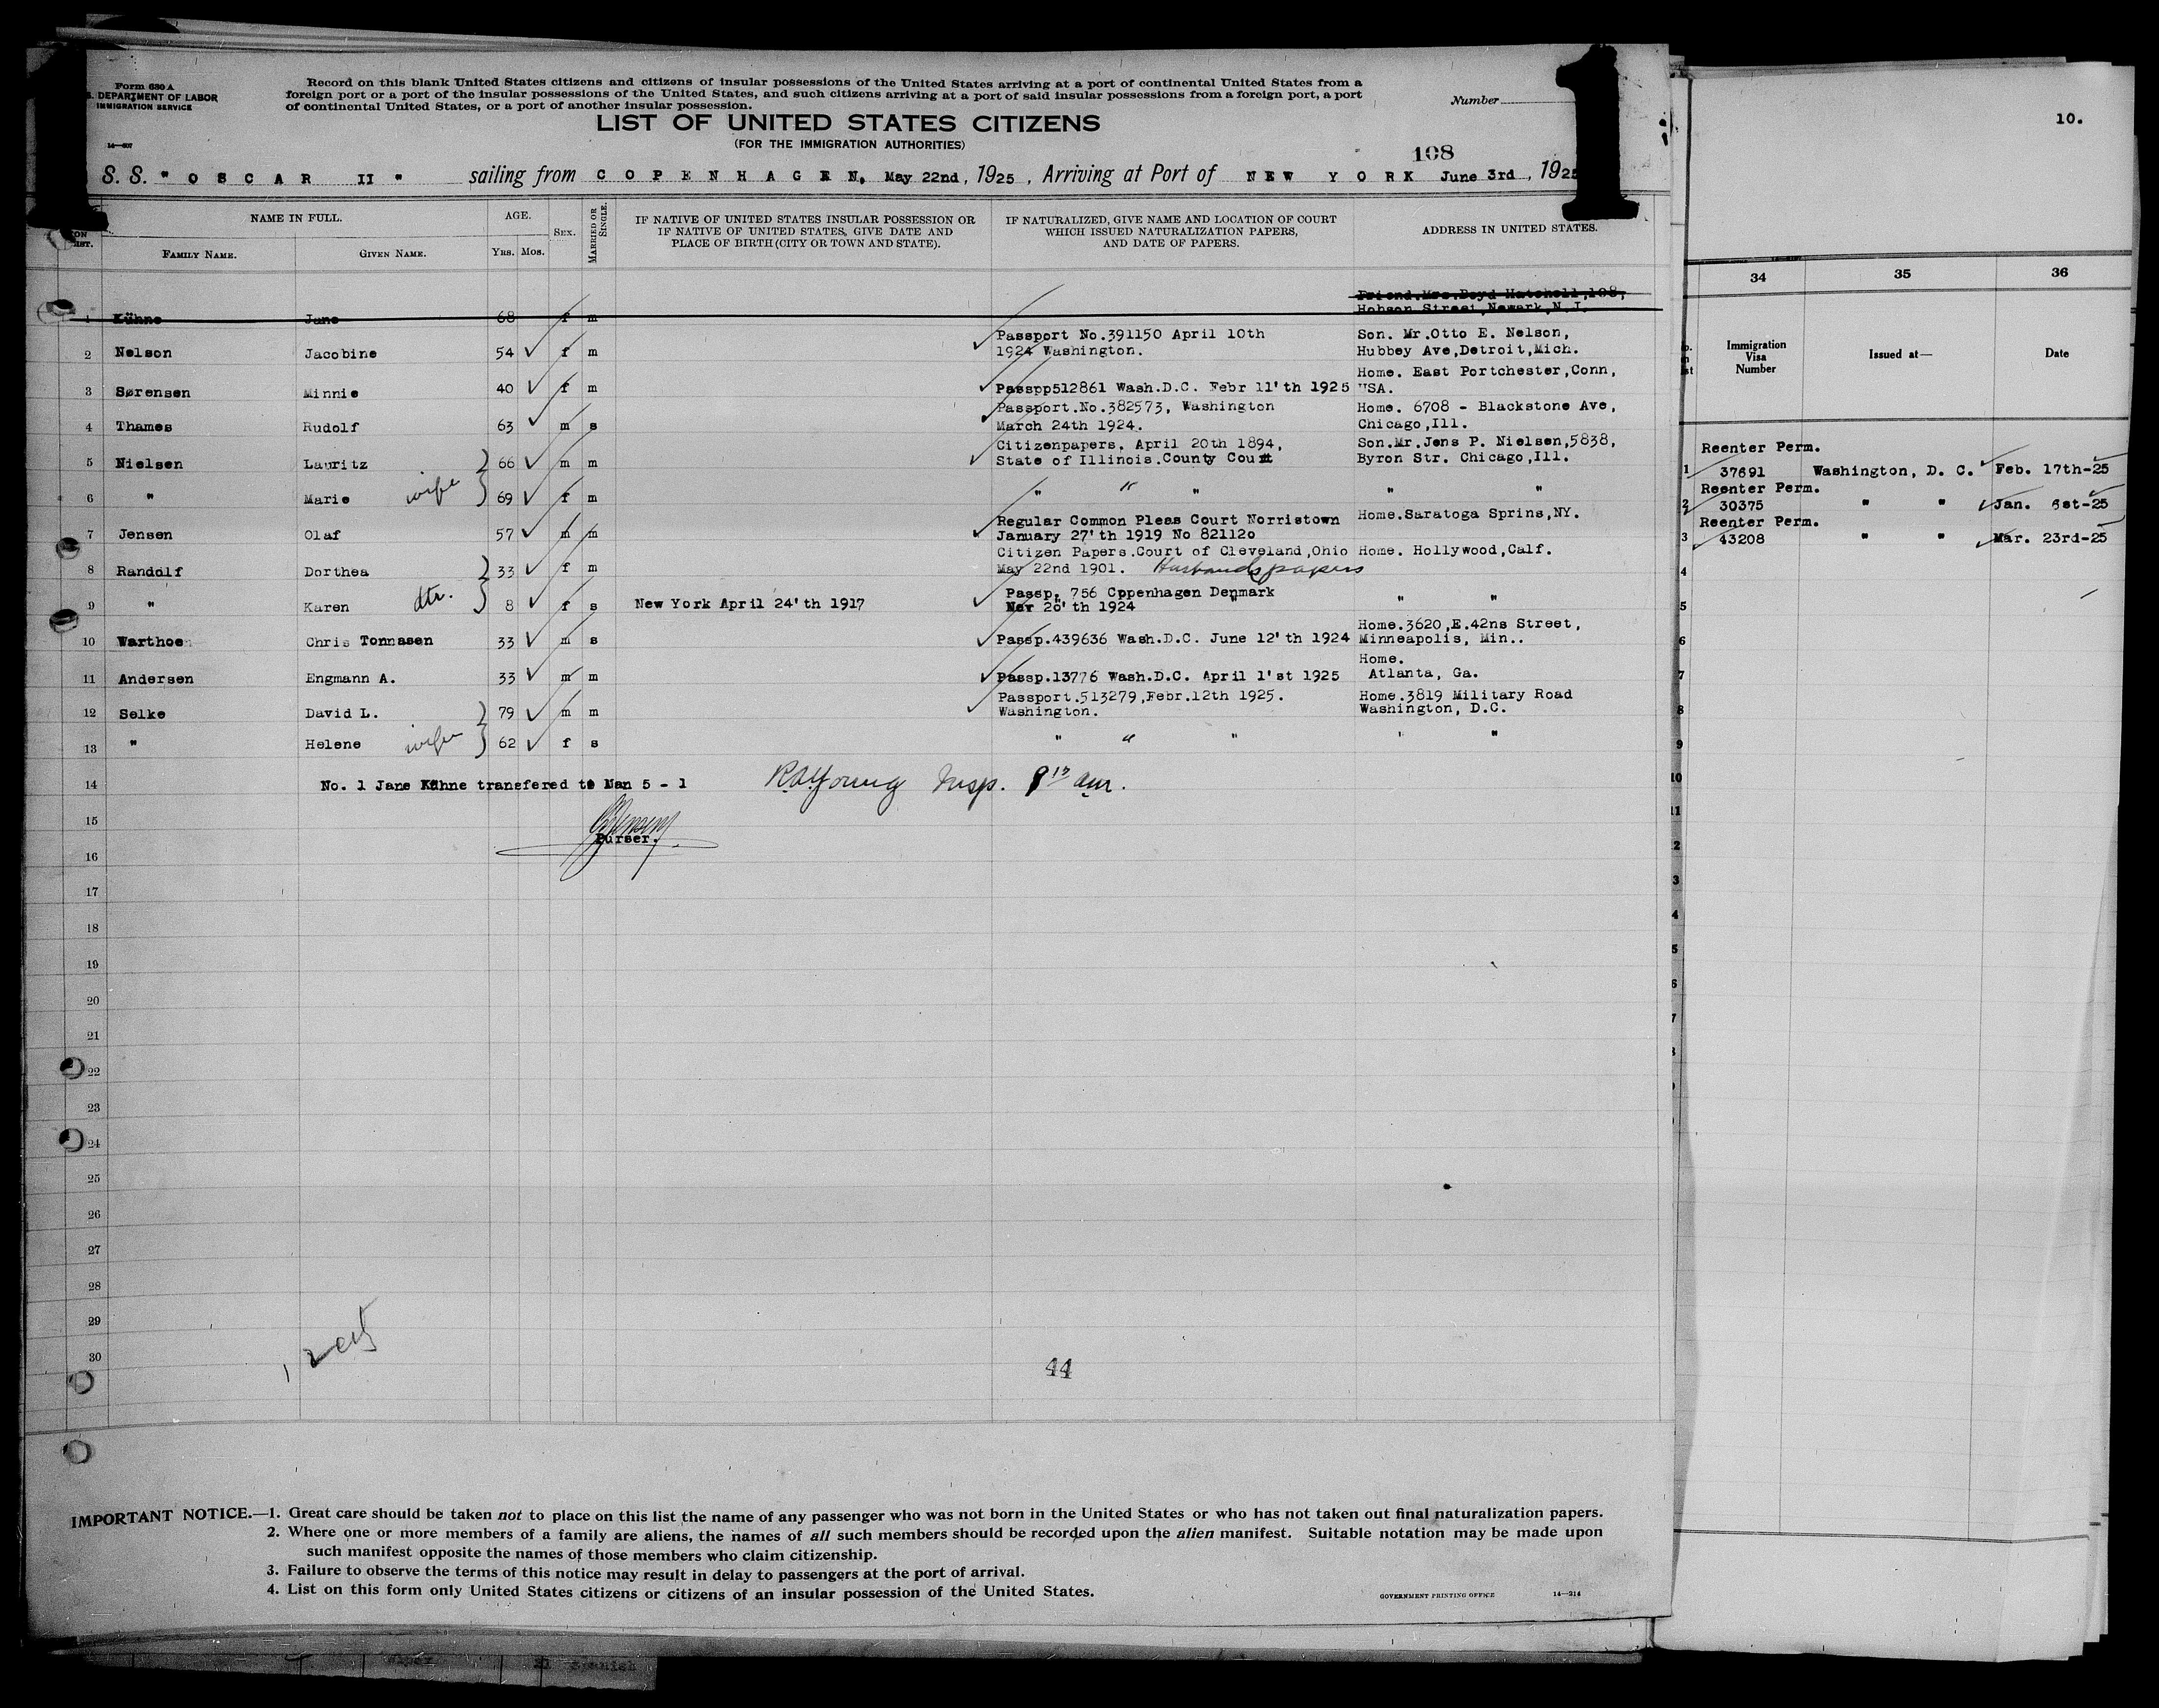 Form 630 A
S. DEPARTMENT OF LABOR
IMMIGRATION SERVICE
14—207
Record on this blank United States citizens and citizens of insular possessions of the United States arriving at a port of continental United States from a
foreign port or a port of the insular possessions of the United States, and such citizens arriving at a port of said insular possessions from a foreign port, a port
of continental United States, or a port of another insular possession.
Number
1
LIST OF UNITED STATES CITIZENS
(FOR THE IMMIGRATION AUTHORITIES)
108
S. S. " OSCAR II " sailing from COPENHAGEN, May 22nd, 1925, Arriving at Port of NEW YORK June 3rd, 1925
NAME IN FULL. AGE. SEX. MARRIED OR SINGLE. IF NATIVE OF UNITED STATES INSULAR POSSESSION OR IF NATIVE OF UNITED STATES, GIVE DATE AND PLACE OF BIRTH (CITY OR TOWN AND STATE). IF NATURALIZED, GIVE NAME AND LOCATION OF COURT WHICH ISSUED NATURALIZATION PAPERS, AND DATE OF PAPERS. ADDRESS IN UNITED STATES.
FAMILY NAME. GIVEN NAME. YRS. MOS.
Friend.Mrs.Boyd Hatchell,108,
1 Kühne Jane 68 f m Hobson Street,Newark,N.J.
Passport No.391150 April 10th Son. Mr.Otto E. Nelson,
2 Nelson Jacobine 54 f m 1924 Washington. Hubbey Ave,Detroit,Mich.
Home. East Portchester,Conn,
3 Sørensen Minnie 40 f m Passpp512861 Wash.D.C. Febr 11'th 1925 USA.
Passport.No.382573, Washington Home. 6708 - Blackstone Ave,
4 Thames Rudolf 63 m s March 24th 1924. Chicago,Ill.
Citizenpapers. April 20th 1894, Son.Mr.Jens P. Nielsen,5838,
5 Nielsen Lauritz 66 m m State of Illinois.County Coutt Byron Str. Chicago,Ill.
6 " Marie wife 69 f m " " " " "
Regular Common Pleas Court Norristown Home.Saratoga Sprins,NY.
7 Jensen Olaf 57 m m January 27'th 1919 No 821120
Citizen Papers.Court of Cleveland,Ohio Home. Hollywood,Calf.
8 Randolf Dorthea 33 f m May 22nd 1901. Husbands papers
Passp. 756 Cppenhagen Denmark
9 " Karen dtr. 8 f s New York April 24'th 1917 20'th 1924 " "
Home.3620,E.42ns Street,
10 Warthoe Chris Tonnasen 33 m s Passp.439636 Wash.D.C. June 12'th 1924 Minneapolis, Min..
Home.
11 Andersen Engmann A. 33 m m Passp.13776 Wash.D.C. April 1'st 1925 Atlanta, Ga.
Passport.513279,Febr.12th 1925. Home.3819 Military Road
12 Selke David L. 79 m m Washington. Washington, D.C.
13 " Helene wife 62 f s " " " ' "
14 No. 1 Jane Kühne transfered to Man 5 - 1 Young Insp.
15 Purser.
16
17
18
19
20
21
22
23
24
25
26
27
28
29
30
44
IMPORTANT NOTICE.—1. Great care should be taken not to place on this list the name of any passenger who was not born in the United States or who has not taken out final naturalization papers.
2. Where one or more members of a family are aliens, the names of all such members should be recorded upon the alien manifest. Suitable notation may be made upon
such manifest opposite the names of those members who claim citizenship.
3. Failure to observe the terms of this notice may result in delay to passengers at the port of arrival.
4. List on this form only United States citizens or citizens of an insular possession of the United States.
GOVERNMENT PRINTING OFFICE 14—214
10.
34 35 36
Immigration Visa Number Issued at— Date
Reenter Perm.
1 37691 Washington, D. C. Feb. 17th-25
Reenter Perm.
2 30375 " " Jan. 6st-25
Reenter Perm.
3 43208 " " Mar. 23rd-25
4
5
6
7
8
9
10
11
2
3
4
5
6
7
Spanish